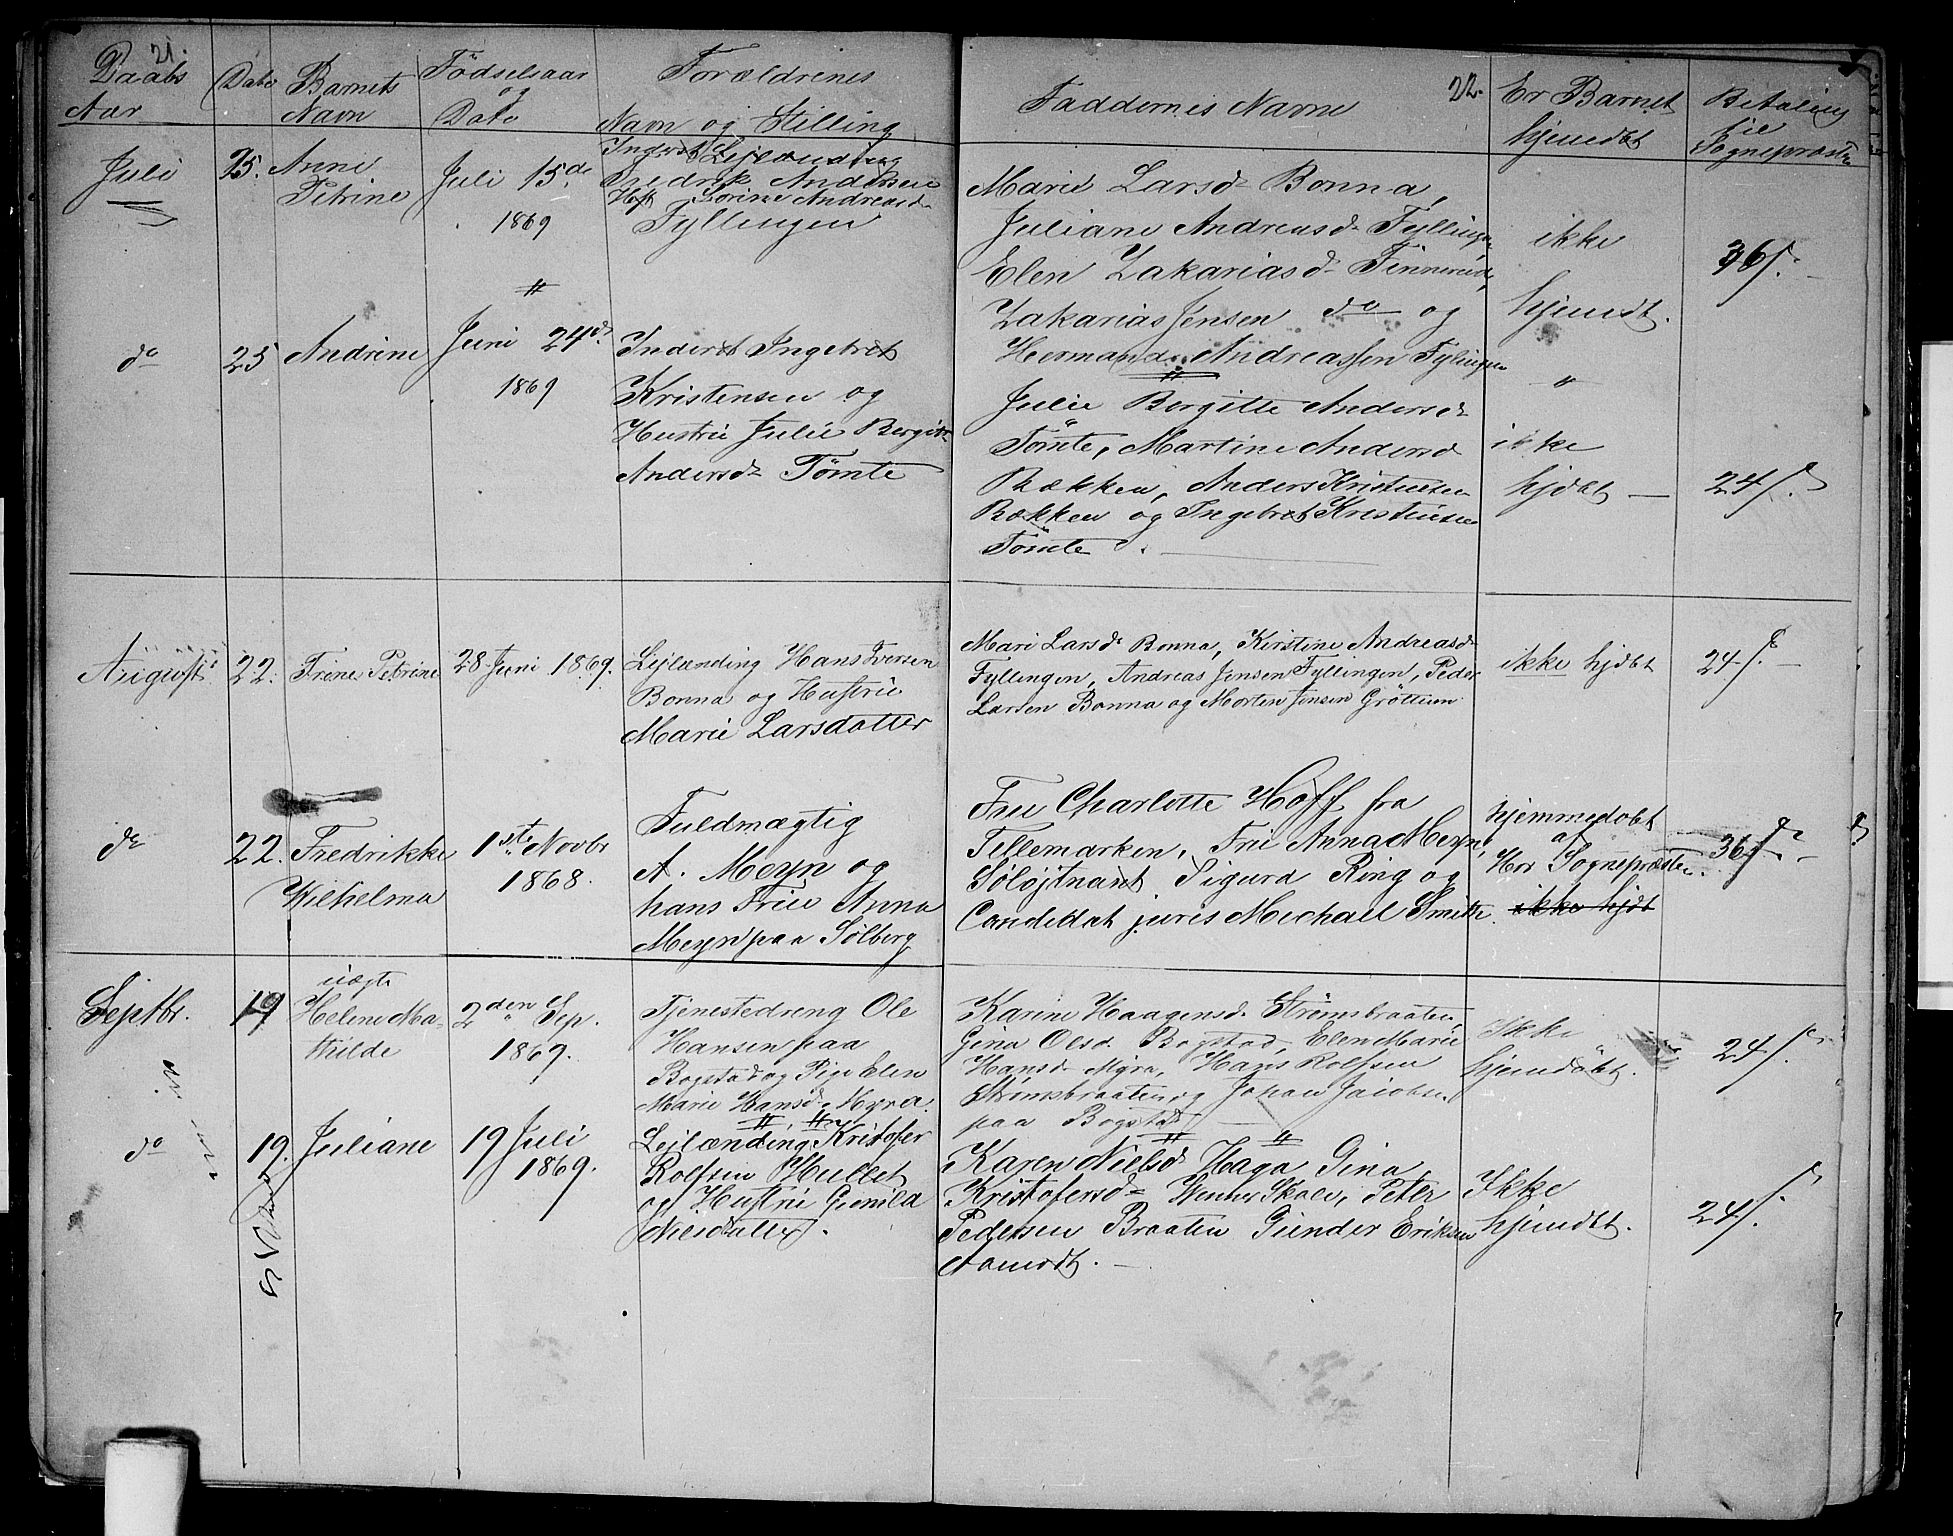 21.
Daabs Aar
Dato
Barnets Navn
Födselsaar og Dato
Forældrenes Navn og Stilling
Faddernes Navne
22.
Er Barnet hjemdöbt
Betaling til Sognepræsten
Juli
25.
Anne
Petrine
Juli 15de
1869
Inderst Lejlænding
Fredrik Andersen
Sörine Andreasd
Fyllingen
Marie Larsd Bonna,
Juliane Andreasd Fyllingen
Elen Zakariasd Finnerud,
Zakarias Jensen do og
Herman Andreassen Fylingen
ikke
hjemdt.
36 s.
do
25
Andrine
Juni 24d.
1869
Inderst Ingebret
Kristensen og
Hustru Julie Bergitte
Andersd Tömte
Julie Bergitte Andersd
Tömte, Martine Andersd
Bækken, Anders Kristensen
Bækken og Ingebret Kristensen
Tömte.
ikke
hjdbt
24 s.
August
22.
Trine Petrine
28 Juni 1869.
Lejlænding Hans Iversen
Bonna og Hustru
Marie Larsdatter
Mari Larsd Bonna, Kirstine Andreasd
Fyllingen, Andreas Jensen Fyllingen, Peder
Larsen Bonna og Morten Jensen Gröttum
ikke hjdbt
24 s.
do
22.
Fredrikke
Wilhelma
1ste Novbr
1868.
Fuldmægtig
A. Meyn og
hans Frue Anna
Meyn paa Sölberg
Fru Charlotte Hoff fra
Tellemarken, Fru Anna Meyn,
Söløjtnant Sigurd Ring og
Candidat juris Michael Smith.
hjemmedöbt
af
Hrr Sognepræsten.
ikke hjdt
36 s.
Septbr.
19
uægte
Helene Ma-
thilde
2den Sep.
1869.
Tjenestedreng Ole
Hansen paa
Bogstad og Pige Elen
Marie Hansd Myra.
Karine Haagensd Strömsbraaten,
Gina Olsd Bogstad, Elen Marie
Hansd Myra, Hans Rolfsen
Strömsbraaten og Johan Jacobsen
paa Bogstad
Ikke
hjemdöbt.
24 s.
do
19.
Juliane
19 Juli
1869.
Lejlænding Kristofer
Rolfsen Hullet
og Hustru Gunila
Nilsdatter.
Karen Nielsd Haga, Gina
Kristofersd Skole, Peter
Pedersen Braaten Gunder Eriksen
Aamodt.
Ikke
hjemdbt.
24 s.